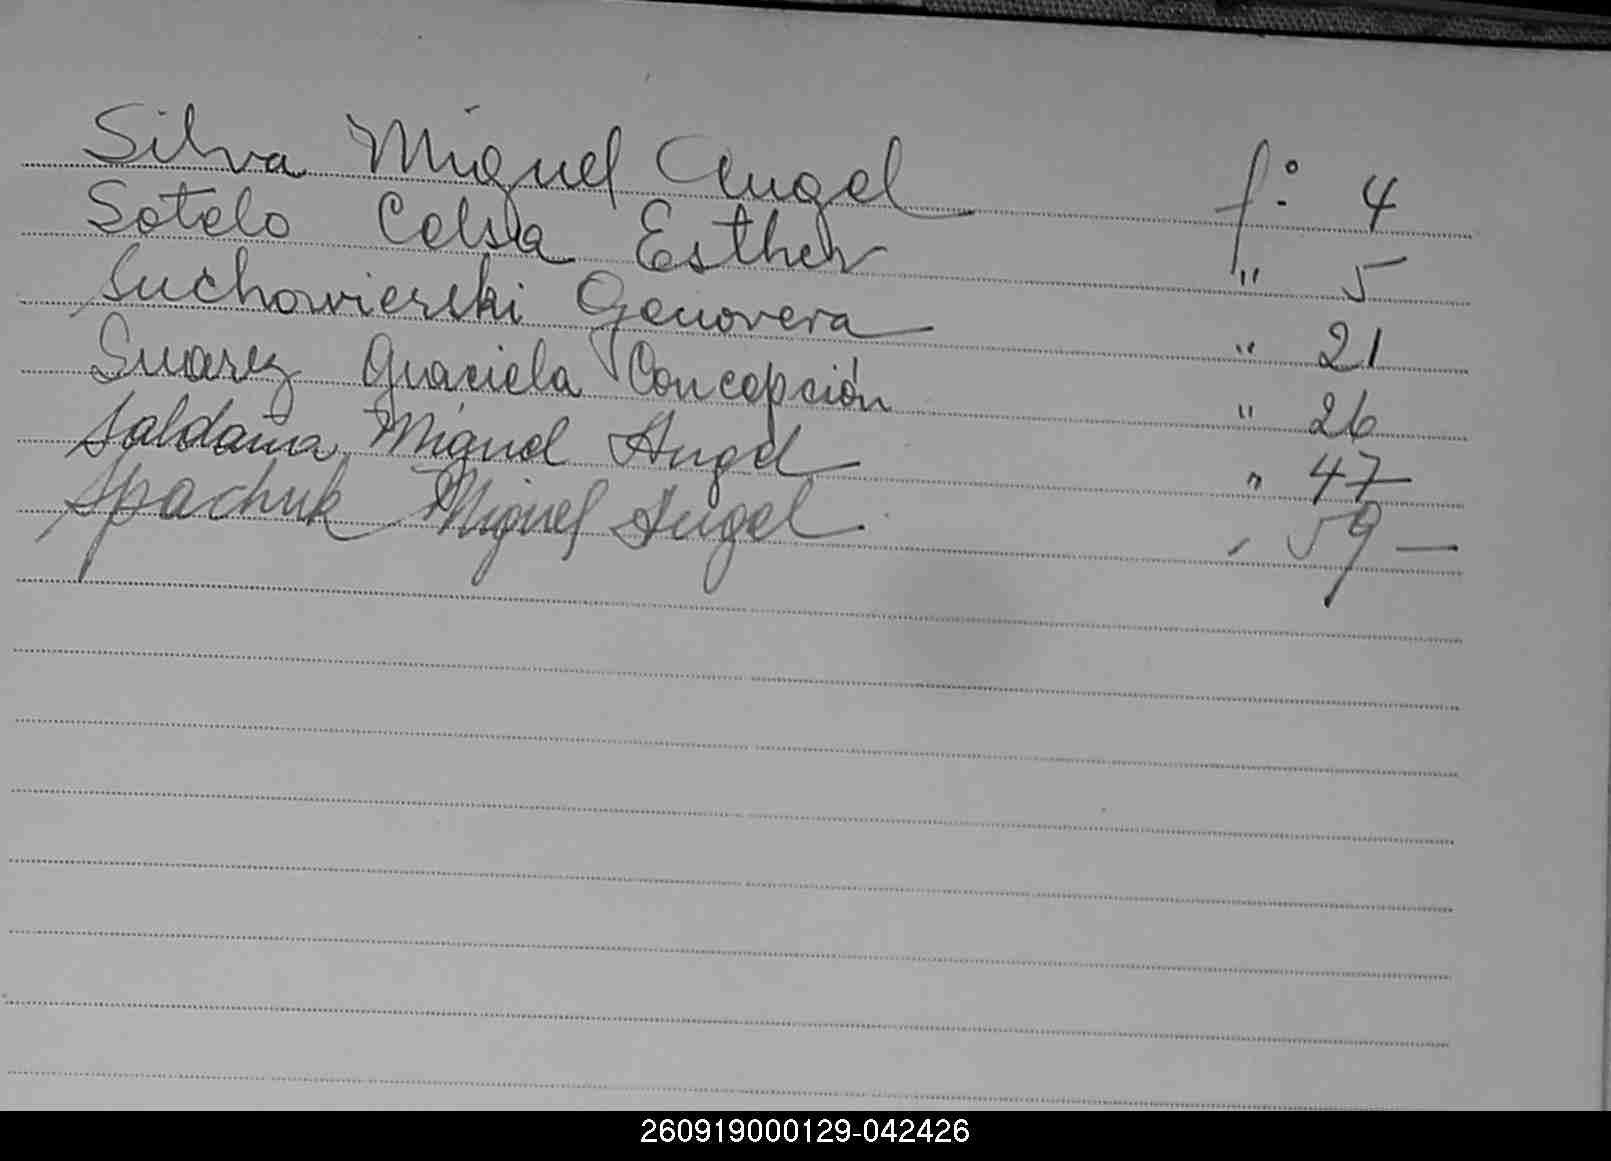 Silva Miguel Angel fº: 4
Sotelo Celsa Esther " 5
Suchowierski Genovera " 21
Suarez Graciela Concepción " 26
Saldaña Miguel Angel " 47
Spachuk Miguel Angel. " 59 —
260919000129-042426